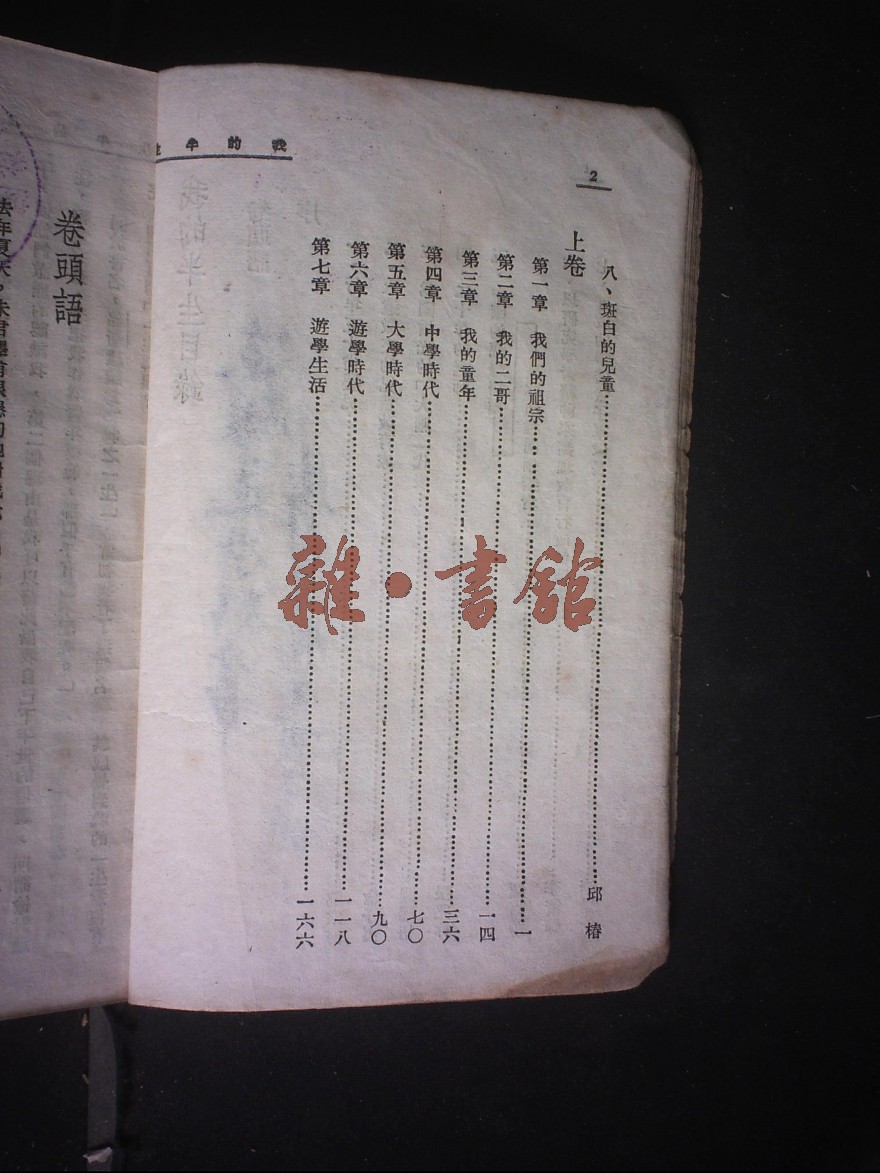 我的半
2
八、斑白的兒童……邱椿
上卷
第一章 我們的祖宗……一
第二章 我的二哥……一四
第三章 我的童年……三六
第四章 中學時代……七〇
第五章 大學時代……九〇
第六章 遊學時代……一一八
第七章 遊學生活……一六六
卷頭語
雜·書館